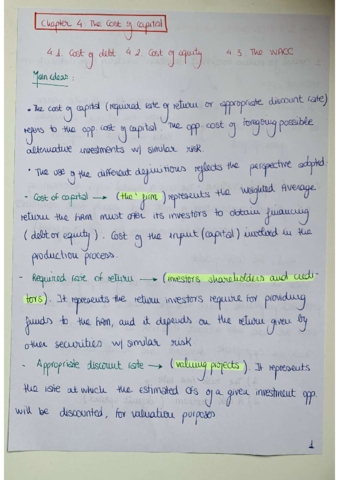 Chapter 4: The Cost of Capital
4.1. Cost of debt 4.2. Cost of equity 4.3. The WACC
Main ideas:
• The cost of capital (required rate of return or appropriate discount rate)
refers to the opp. cost of capital. The opp. cost of foregoing possible
alternative investments w/ similar risk
• The use of the different definitions reflects the perspective adopted:
- Cost of capital → (the firm) represents the Weighted Average
return the firm must offer its investors to obtain financing
(debt or equity). Cost of the input (capital) involved in the
production process.
- Required rate of return → (investors shareholders and credi-
tors). It represents the return investors require for providing
funds to the firm, and it depends on the return given by
other securities w/ similar risk
- Appropriate discount rate → (valuing projects). It represents
the rate at which the estimated CFs of a given investment opp.
will be discounted, for valuation purposes
1